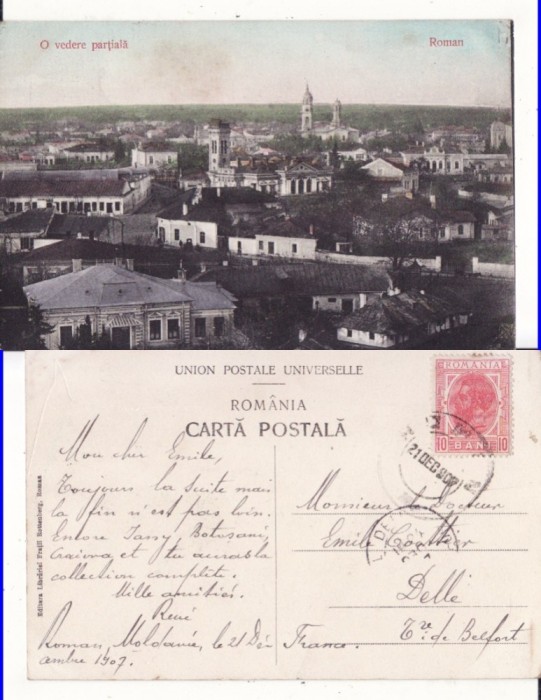 O vedere parțială
Roman
UNION POSTALE UNIVERSELLE
ROMÂNIA
CARTĂ POSTALĂ
ROMANIA
10 BANI 10
21 DEC 907
Mon cher Emile,
Toujours la suite mais
la fin n'est pas loin.
Encore Jassy, Botosani,
Craiova et tu auras la
collection complète.
Mille amitiés.
René
Roman, Moldavie, le 21 Dé
cembre 1907.
Monsieur le Docteur
Emile
Delle
Tre. de Belfort
France.
Editura Librăriei Frații Rottenberg, Roman